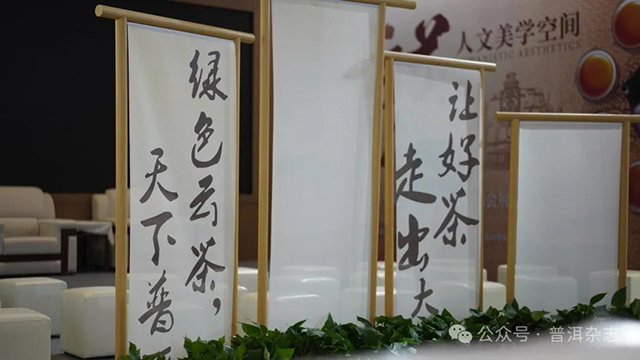 绿色云茶,
天下普
让好茶
走出大
人文美学空间
公众号·普洱杂志